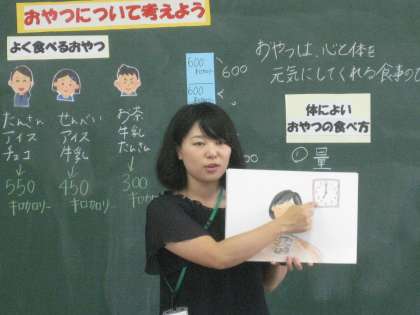 おやつについて考えよう
よく食べるおやつ
だんさん
アイス
チョコ
↓
550
キロカロリー
せんべい
アイス
牛乳
↓
450
キロカロリー
お茶
牛乳
だんさん
↓
300
キロカロリー
600
キロカロリー
600
600
おやつは、心と体を
元気にしてくれる食事の
体によい
おやつの食べ方
①量